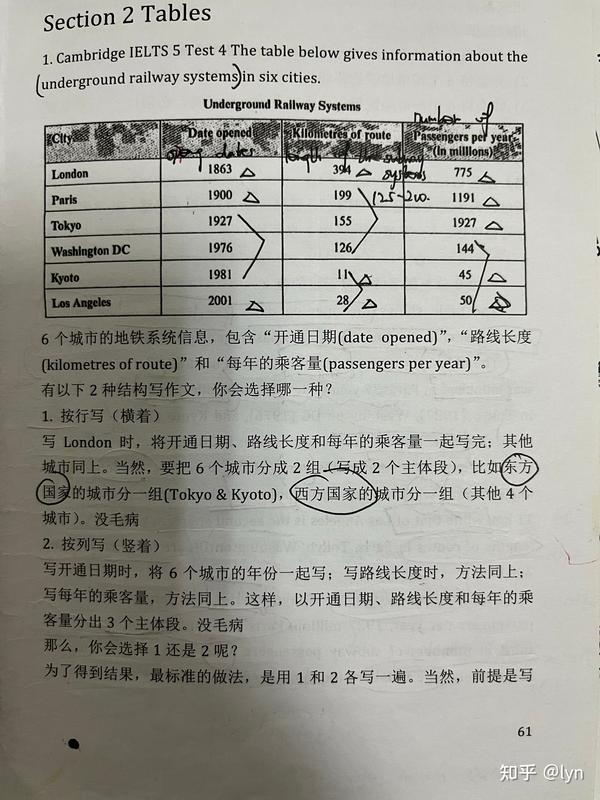 Section 2 Tables
1. Cambridge IELTS 5 Test 4 The table below gives information about the
(underground railway systems) in six cities.
Underground Railway Systems
number of
City Date opened Kilometres of route Passengers per year (in millions)
dates length of the
London 1863 394 775
systems
Paris 1900 199 125-200 1191
Tokyo 1927 155 1927
Washington DC 1976 126 144
Kyoto 1981 11 45
Los Angeles 2001 28 50
6 个城市的地铁系统信息，包含“开通日期(date opened)”，“路线长度
(kilometres of route)”和“每年的乘客量(passengers per year)”。
有以下 2 种结构写作文，你会选择哪一种？
1. 按行写（横着）
写 London 时，将开通日期、路线长度和每年的乘客量一起写完；其他
城市同上。当然，要把 6 个城市分成 2 组（写成 2 个主体段），比如东方
国家的城市分一组(Tokyo & Kyoto)，西方国家的城市分一组（其他 4 个
城市）。没毛病
2. 按列写（竖着）
写开通日期时，将 6 个城市的年份一起写；写路线长度时，方法同上；
写每年的乘客量，方法同上。这样，以开通日期、路线长度和每年的乘
客量分出 3 个主体段。没毛病
那么，你会选择 1 还是 2 呢？
为了得到结果，最标准的做法，是用 1 和 2 各写一遍。当然，前提是写
61
知乎 @lyn